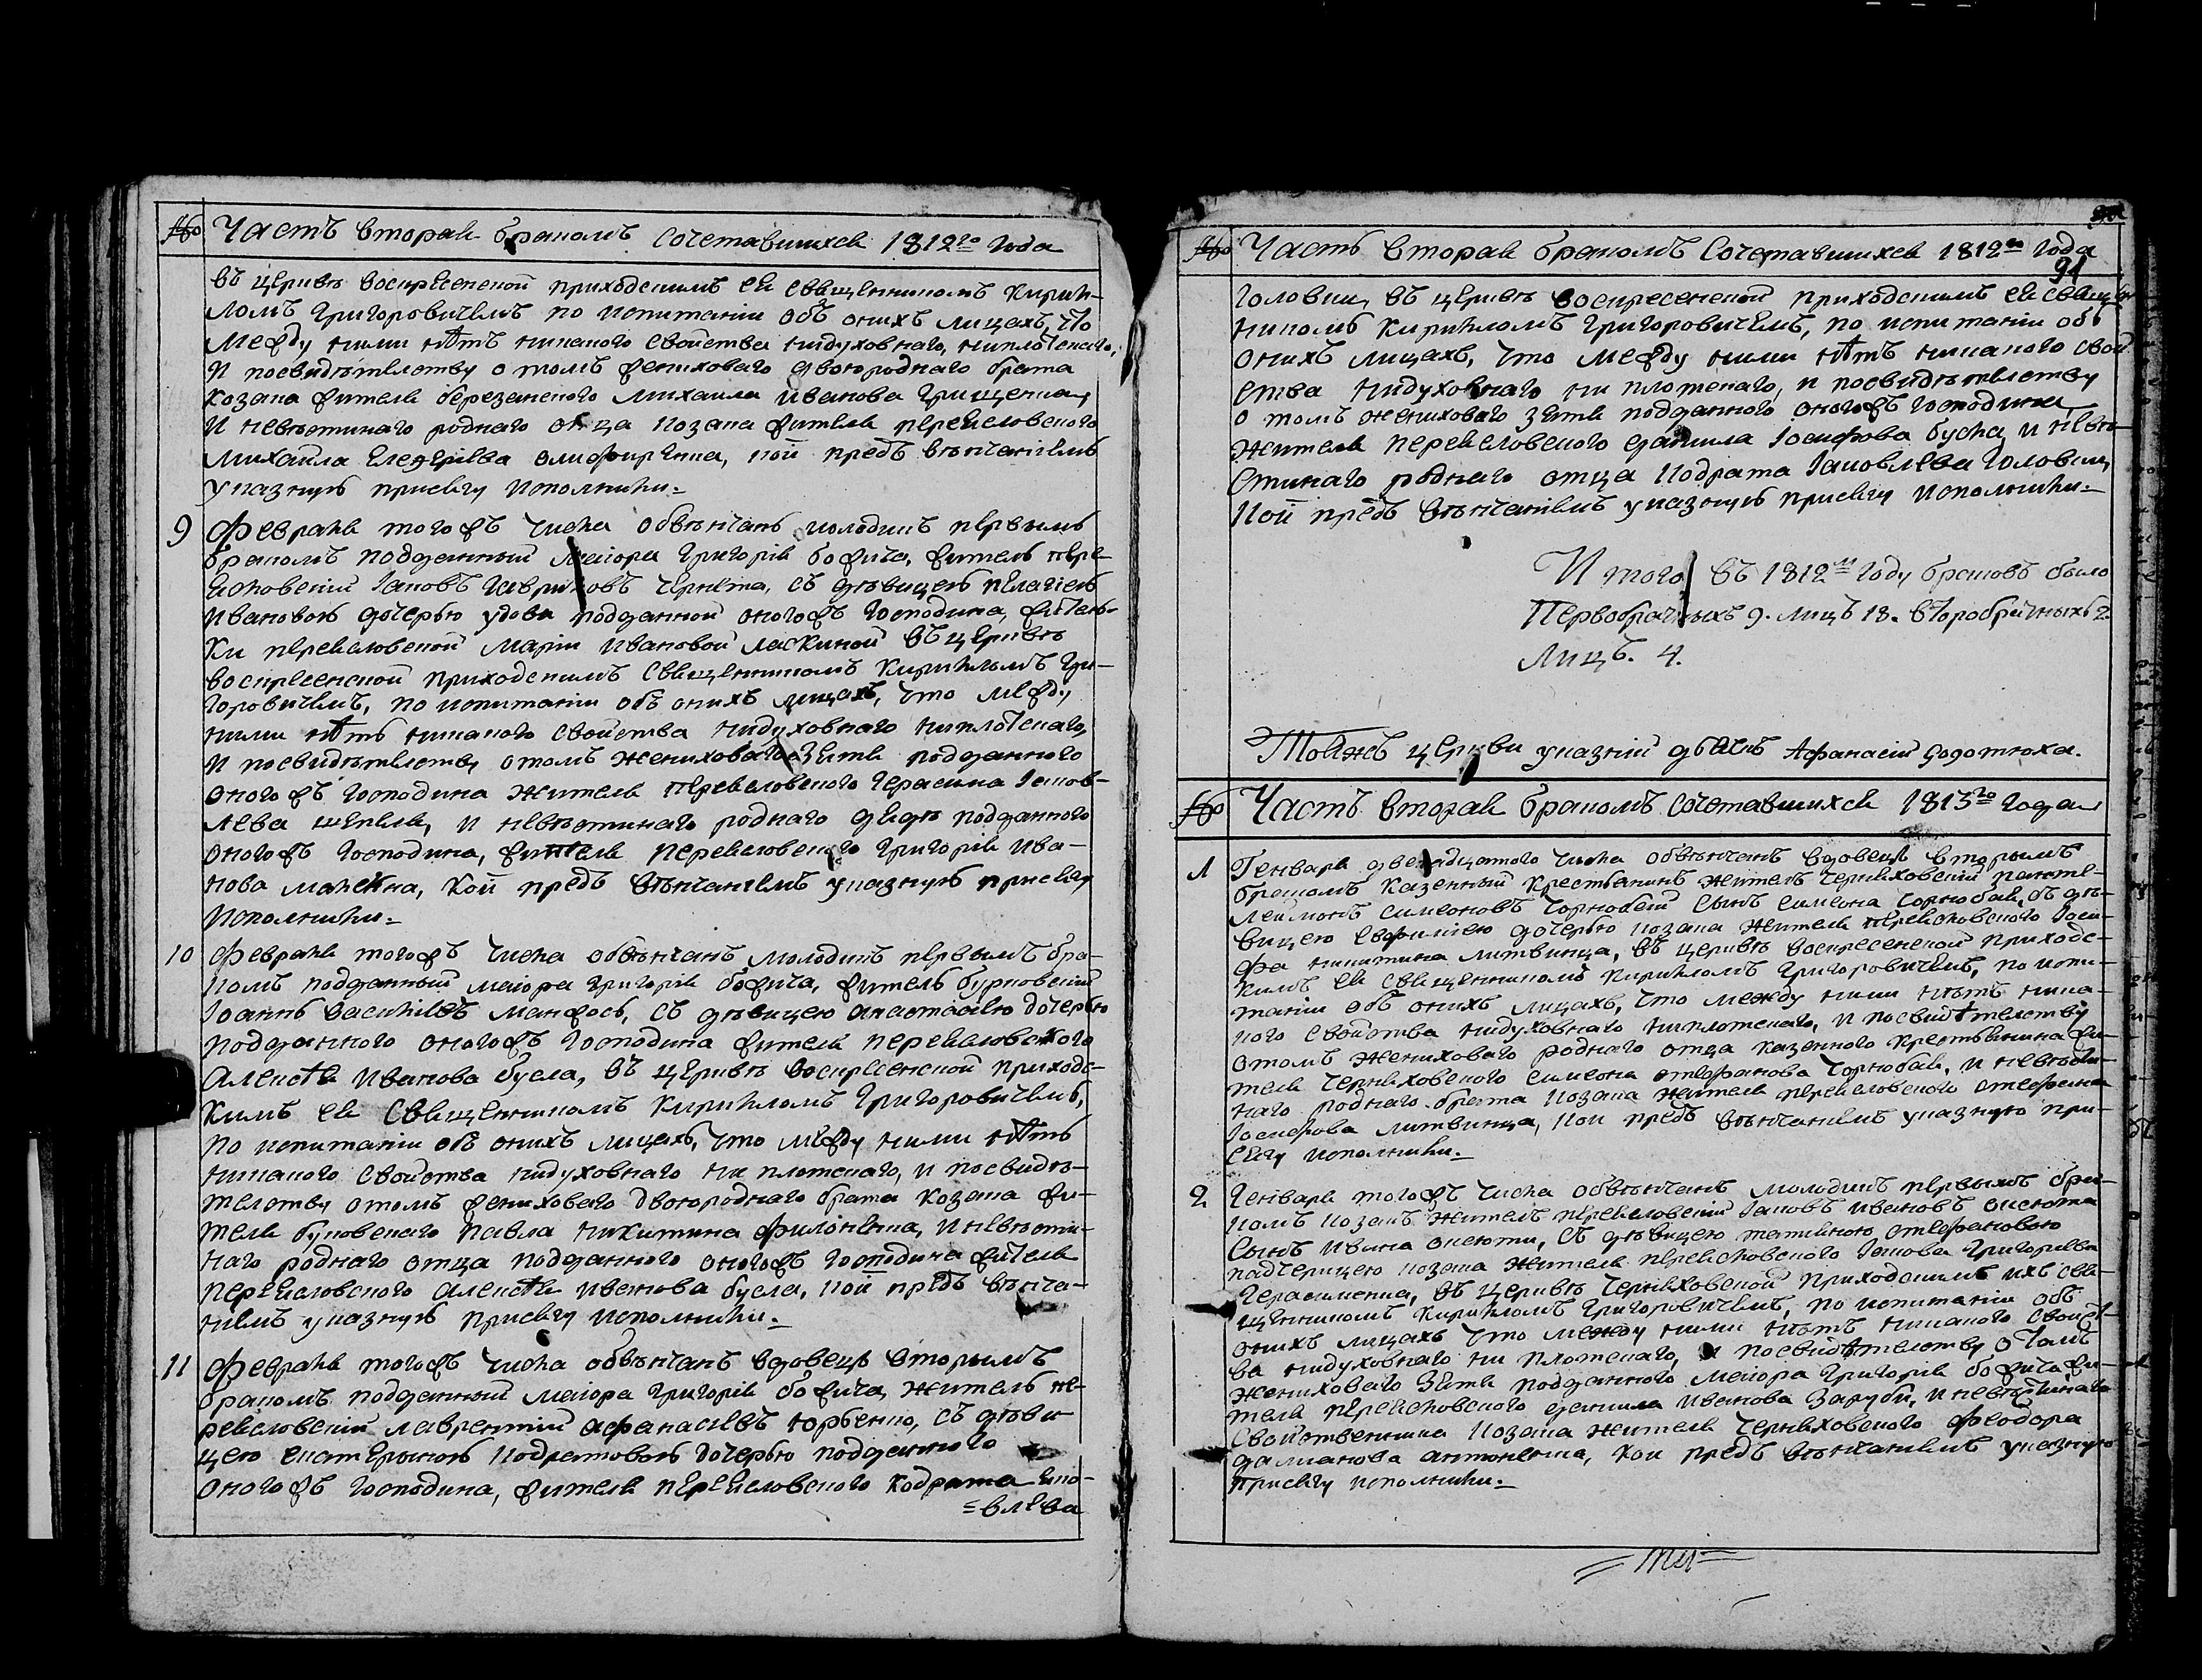 № Часть вторая бракомъ сочетавшихся 1812го года
въ церквѣ воскресенской приходскимъ ея священникомъ Кирил-
ломъ Григоровичемъ по испитаніи объ онихъ лицахъ, что
между ними нѣтъ никакого свойства нидуховнаго, ниплотскаго,
и посвидѣтелству о томъ жениховаго двоюроднаго брата
козака жителя березанского михаила иванова Грищенка,
и невѣстинаго роднаго отца козака жителя переясловского
михаила олифиренка, кои предъ вѣнчаніемъ
указную присягу исполнили.
9 Февраля тогожъ числа обвѣнчанъ молодикъ первымъ
бракомъ подданный маіора григорія божича, житель пере-
ясловскій Іаковъ чернета, съ дѣвицею пелагіею
ивановою дочерью удови подданной оногожъ господина, житель-
ки переясловской маріи ивановой ласкиной въ церквѣ
воскресенской приходскимъ священникомъ Кирилломъ Гри-
горовичемъ, по испитаніи объ онихъ лицахъ, что между
ними нѣтъ никакого свойства нидуховнаго ниплотскаго,
и посвидѣтелству отомъ жениховаго зятя подданного
оногожъ господина жителя переясловского герасима Іяков-
лева шепеля, и невѣстинаго роднаго дяди подданного
оногожъ господина, жителя переясловского григорія ива-
нова, кои предъ вѣнчаніемъ указную присягу
исполнили.
10 Февраля тогожъ числа обвѣнчанъ молодикъ первымъ бра-
комъ подданный маіора григорія божича, житель бурковскій
Іоаннъ василіевъ манжось, съ дѣвицею анастасіею дочерью
подданного оногожъ господина жителя переясловского
Алексѣя иванова бусла, въ церквѣ воскресенской приходс-
кимъ ея священникомъ Кирилломъ Григоровичемъ,
по испитаніи объ онихъ лицахъ, что между ними нѣтъ
никакого свойства нидуховнаго ни плотскаго, и посвидѣ-
телству отомъ жениховаго двоюроднаго брата козака жи-
теля павла никитина филоненка, и невѣсти-
наго роднаго отца подданного оногожъ господина жителя
переясловского алексѣя иванова бусла, кои предъ вѣнча-
ніемъ указную присягу исполнили.
11 Февраля тогожъ числа обвѣнчанъ вдовецъ вторымъ
бракомъ подданный маіора григорія божича, житель пе-
реясловскій лаврентій афанасіевъ горбенко, съ дѣви-
цею екатериною кодратовою дочерью подданного
оногожъ господина, жителя переясловского кодрата Іяко-
=влева
91
№ Часть вторая бракомъ сочетавшихся 1812го года
головки, въ церквѣ воскресенской приходскимъ ея священ-
никомъ Кирилломъ Григоровичемъ, по испитаніи объ
онихъ лицахъ, что между ними нѣтъ никакого свой-
ства нидуховнаго ни плотскаго, и посвидѣтелству
о томъ жениховаго зятя подданного оногожъ господина
жителя переясловского данила Іосифова буска, и невѣ-
стинаго роднаго отца кодрата Іаковлева головки,
кои предъ вѣнчаніемъ указную присягу исполнили.
Итого въ 1812м году браковъ было
Первобрачныхъ 9. лицъ 18. второбрачныхъ 2.
Лицъ. 4.
Тояжъ церкви указній дьячъ Афанасій
№ Часть вторая бракомъ сочетавшихся 1813го года
1 Генваря двенадцатого числа обвѣнчанъ вдовецъ вторымъ
бракомъ казенный крестьянинъ житель черняховскій панте-
леймонъ симеоновъ чорнобай сынъ симеона чорнобая, съ дѣ-
вицею евфиміею дочерью козака жителя переясловского Іоси-
фа никитина литвинца, въ церквѣ воскресенской приходс-
кимъ ея священникомъ Кирилломъ Григоровичемъ, по испи-
таніи объ онихъ лицахъ, что между ними нѣтъ ника-
кого свойства нидуховнаго ниплотскаго, и посвидѣтелству
отомъ жениховаго роднаго отца казенного крестьянина жи-
теля черняховского симеона стефанова чорнобая, и невѣсти-
наго роднаго брата козака жителя переясловского стефана
Іосифова литвинца, кои предъ вѣнчаніемъ указную при-
сягу исполнили.
2 Генваря тогожъ числа обвѣнчанъ молодикъ первымъ бра-
комъ козакъ житель переясловскій Іаковъ ивановъ оксюта
сынъ ивана оксюти, съ дѣвицею татіяною стефановою
падчерицею козака жителя переясловского Іакова григоріева
герасименка, въ церквѣ черняховской приходскимъ ихъ свя-
щенникомъ Кирилломъ Григоровичемъ, по испитаніи объ
онихъ лицахъ что между ними нѣтъ никакого свойст-
ва нидуховнаго ни плотскаго, и посвидѣтелству отомъ
жениховаго зятя подданного маіора григорія божича жи-
теля переясловского данила иванова заруби, и невѣстинаго
свойственника козака жителя черняховского феодора
даміанова антоненка, кои предъ вѣнчаніемъ указную
присягу исполнили.